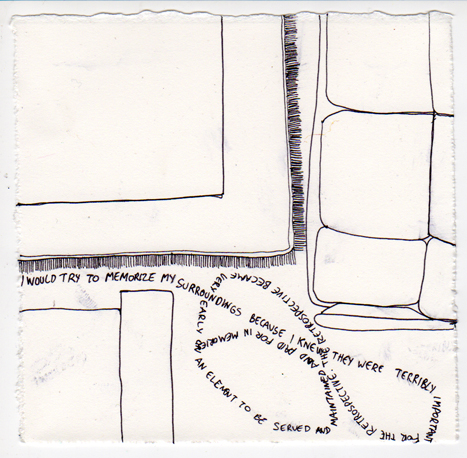 I WOULD TRY TO MEMORIZE MY SURROUNDINGS BECAUSE I KNEW THEY WERE TERRIBLY IMPORTANT FOR THE RETROSPECTIVE. THE RETROSPECTIVE BECAME VERY EARLY ON AN ELEMENT TO BE SERVED AND MAINTAINED AND PAID FOR IN MEMORIES